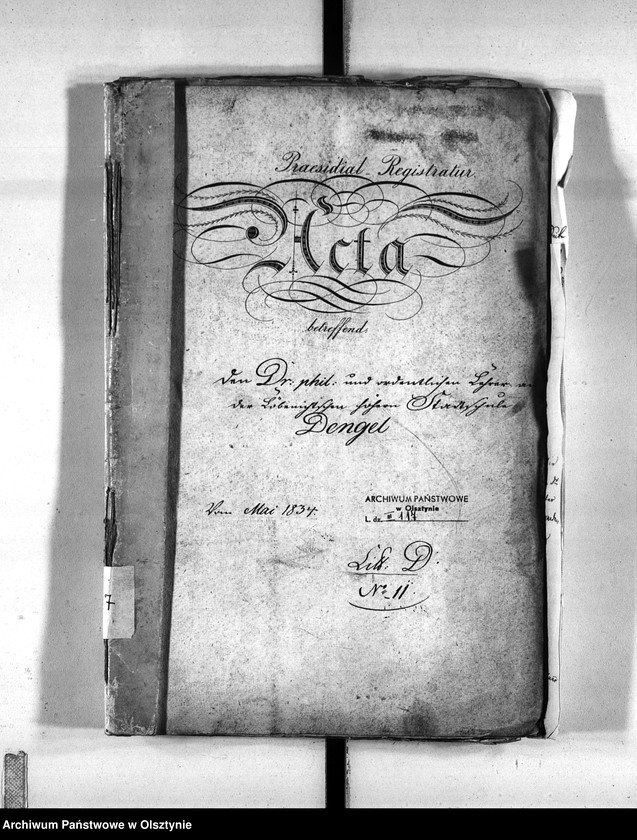 Praesidial-Registratur
Acta
betreffend
den Dr: phil: und ordentlichen Lehrer an
der Löbenichtschen höhern Stadtschule
Dengel
Vom Mai 1834.
ARCHIWUM PAŃSTWOWE
w Olsztynie
L. dz. III 117
Litt: D:
No 11.
7
Archiwum Państwowe w Olsztynie